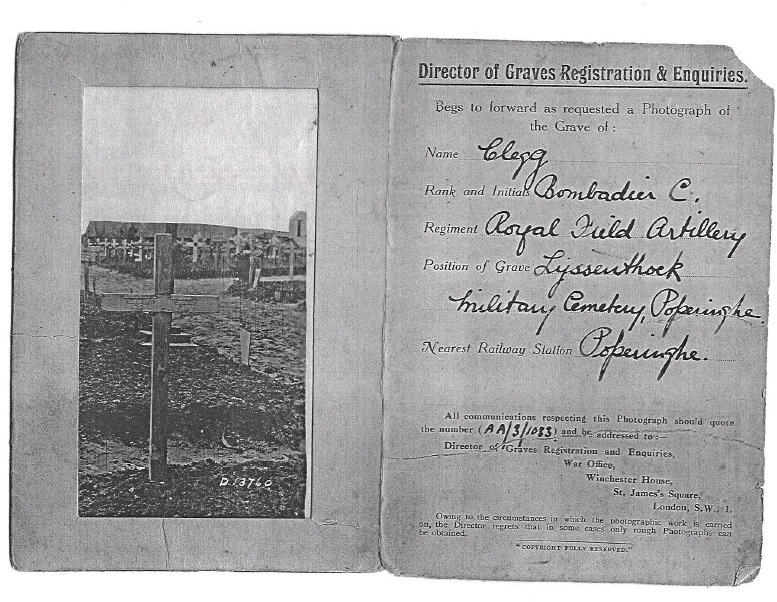 D13760
Director of Graves Registration & Enquiries.
Begs to forward as requested a Photograph of
the Grave of :
Name Clegg
Rank and Initials Bombadier C.
Regiment Royal Field Artillery
Position of Grave Lijssenthock
Military Cemetery, Poperinghe.
Nearest Railway Station Poperinghe.
All communications respecting this Photograph should quote
the number (AA/3/1033) and be addressed to :—
Director of Graves Registration and Enquiries,
War Office,
Winchester House,
St. James's Square,
London, S.W., 1.
Owing to the circumstances in which the photographic work is carried
on, the Director regrets that in some cases only rough Photographs can
be obtained.
"COPYRIGHT FULLY RESERVED."